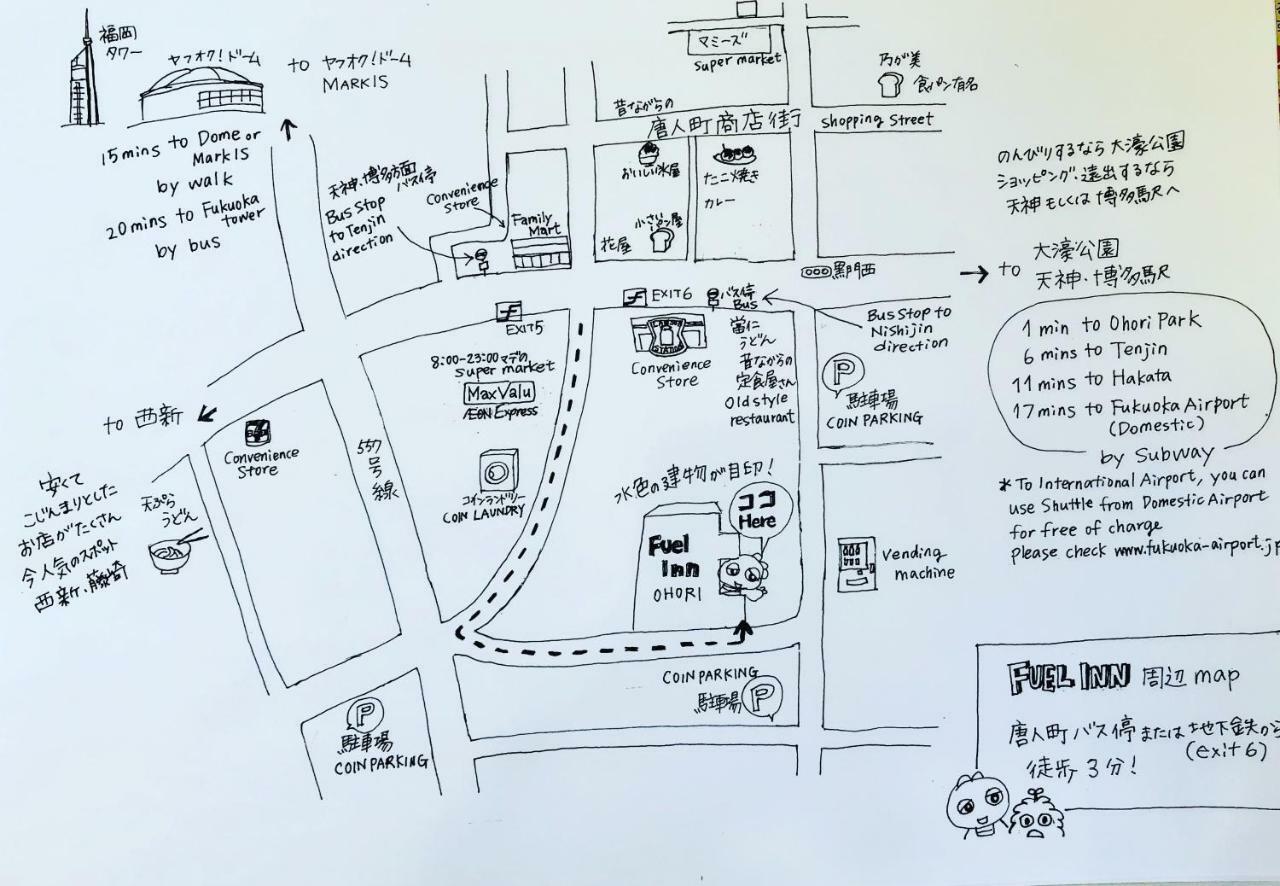 福岡
タワー
ヤフオク!ドーム
to ヤフオク!ドーム
MARKIS
15 mins to Dome or
MarkIS
by walk
20 mins to Fukuoka
tower
by bus
マミーズ
super market
乃が美
食パン有名
昔ながらの
唐人町商店街
shopping Street
おいしい氷屋
たこ焼き
カレー
小さいパン屋
花屋
天神・博多方面
バス停
Bus Stop
to Tenjin
direction
Convenience
Store
Family
Mart
のんびりするなら 大濠公園
ショッピング・遠出するなら
天神 もしくは 博多駅へ
黒門西
to 大濠公園
天神・博多駅
1 min to Ohori Park
6 mins to Tenjin
11 mins to Hakata
17 mins to Fukuoka Airport
(Domestic)
by Subway
*To International Airport, you can
use Shuttle from Domestic Airport
for free of charge
please check www.fukuoka-airport.jp
EXIT5
EXIT6
バス停
Bus
Bus Stop to
Nishijin
direction
8:00-23:00マデの
super market
MaxValu
ÆON Express
Convenience
Store
當仁
うどん
昔ながらの
定食屋さん
Old style
restaurant
P
駐車場
COIN PARKING
to 西新
Convenience
Store
557号線
コインランドリー
COIN LAUNDRY
安くて
こじんまりとした
お店がたくさん
今人気のスポット
西新、藤崎
天ぷら
うどん
水色の建物が目印!
ココ
Here
Fuel
Inn
OHORI
Vending
machine
COIN PARKING
駐車場
P
P
駐車場
COIN PARKING
FUEL INN 周辺 map
唐人町 バス停 または 地下鉄から
(exit 6)
徒歩 3分!